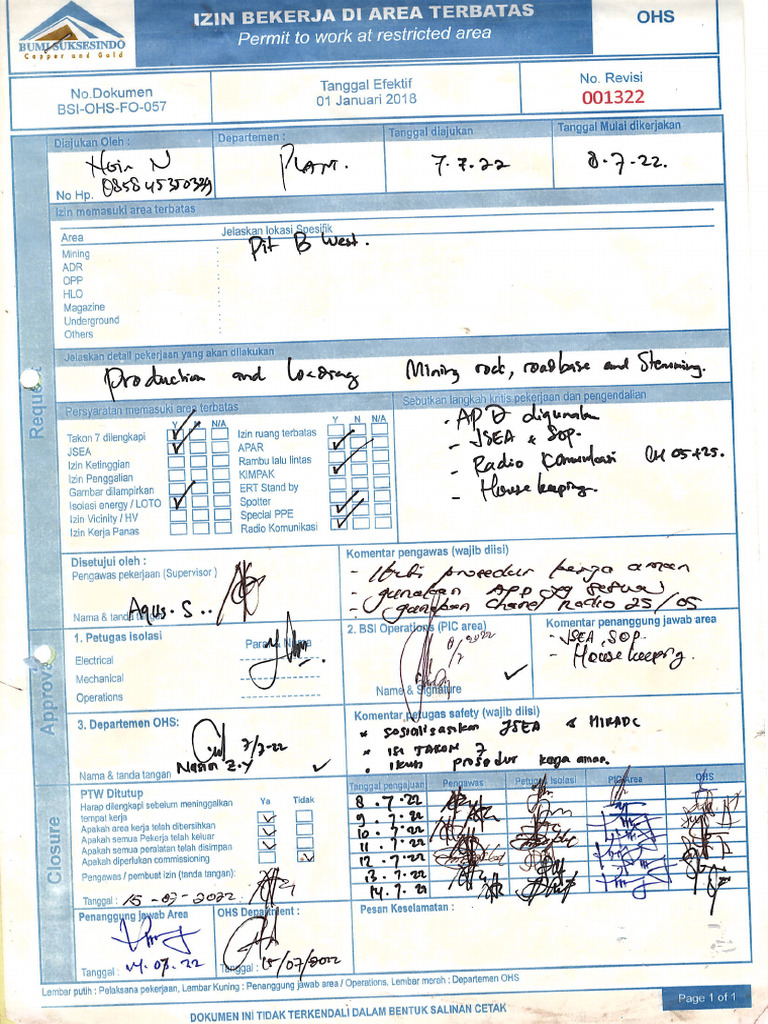 BUMI SUKSESINDO
Copper and Gold
IZIN BEKERJA DI AREA TERBATAS
Permit to work at restricted area
OHS
No.Dokumen
BSI-OHS-FO-057
Tanggal Efektif
01 Januari 2018
No. Revisi
001322
Diajukan Oleh :
Departemen :
Tanggal diajukan
7.7.22
Tanggal Mulai dikerjakan
8.7.22.
No Hp.
Izin memasuki area terbatas
Area
Jelaskan lokasi Spesifik
Pit B West.
Mining :
ADR :
OPP :
HLO :
Magazine :
Underground :
Others :
Jelaskan detail pekerjaan yang akan dilakukan
Production and Loading Mining rock, roadbase and Stemming.
Request
Persyaratan memasuki area terbatas
Y N/A
Takon 7 dilengkapi
JSEA
Izin Ketinggian
Izin Penggalian
Gambar dilampirkan
Isolasi energy / LOTO
Izin Vicinity / HV
Izin Kerja Panas
Y N N/A
Izin ruang terbatas
APAR
Rambu lalu lintas
KIMPAK
ERT Stand by
Spotter
Special PPE
Radio Komunikasi
Sebutkan langkah kritis pekerjaan dan pengendalian
- APD digunakan
- JSEA & SOP.
- Radio Komunikasi CH 05+25.
- House keeping.
Disetujui oleh :
Pengawas pekerjaan (Supervisor )
Agus. S
Nama & tanda tangan
Komentar pengawas (wajib diisi)
- prosedur kerja aman
- gunakan APD yg sesuai
- gunakan chanel Radio 25/05
Approval
1. Petugas isolasi
Paraf & Nama
Electrical
Mechanical
Operations
2. BSI Operations (PIC area)
8/7 2022
Name & Signature
Komentar penanggung jawab area
- JSEA, SOP.
- House keeping.
3. Departemen OHS:
7/7-22
Nasir Z.Y
Nama & tanda tangan
Komentar petugas safety (wajib diisi)
* sosialisasikan JSEA & HIRADC
* isi TAKON 7
. ikuti prosedur kerja aman.
Closure
PTW Ditutup
Ya Tidak
Harap dilengkapi sebelum meninggalkan
tempat kerja
Apakah area kerja telah dibersihkan
Apakah semua Pekerja telah keluar
Apakah semua peralatan telah disimpan
Apakah diperlukan commissioning
Pengawas / pembuat izin (tanda tangan):
Tanggal : 15-07-2022
Tanggal pengajuan Pengawas Petugas Isolasi PIC Area OHS
8.7.22
9.7.22
10.7.22
11.7.22
12.7.22
13.7.22
14.7.21
Penanggung jawab Area
Tanggal : 14.07.22
OHS Department :
Tanggal : 15/07/2022
Pesan Keselamatan :
Lembar putih : Pelaksana pekerjaan, Lembar Kuning : Penanggung jawab area / Operations, Lembar merah : Departemen OHS
Page 1 of 1
DOKUMEN INI TIDAK TERKENDALI DALAM BENTUK SALINAN CETAK